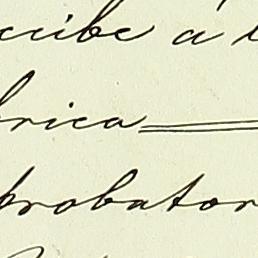 cribe a l
brica
probator